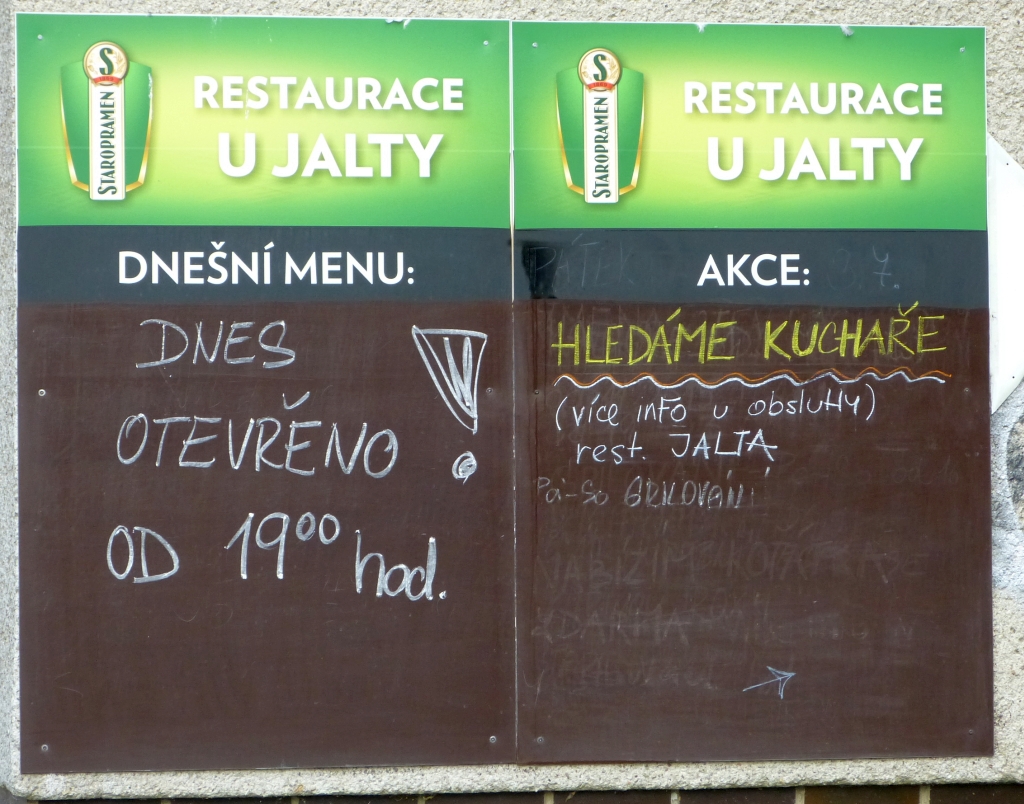 S
STAROPRAMEN
RESTAURACE
U JALTY
DNEŠNÍ MENU:
DNES
OTEVŘENO !
OD 19⁰⁰ hod.
S
STAROPRAMEN
RESTAURACE
U JALTY
PÁTEK 3.7.
AKCE:
HLEDÁME KUCHAŘE
(více info u obsluhy)
rest. JALTA
Pá-So GRILOVÁNÍ
ZDARMA